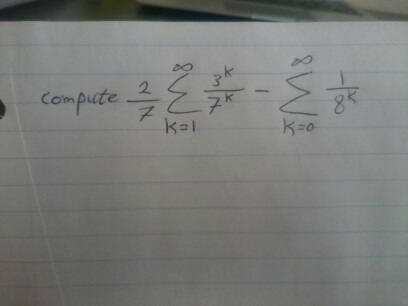 compute \frac{2}{7} \sum_{k=1}^{\infty} \frac{3^k}{7^k} - \sum_{k=0}^{\infty} \frac{1}{8^k}